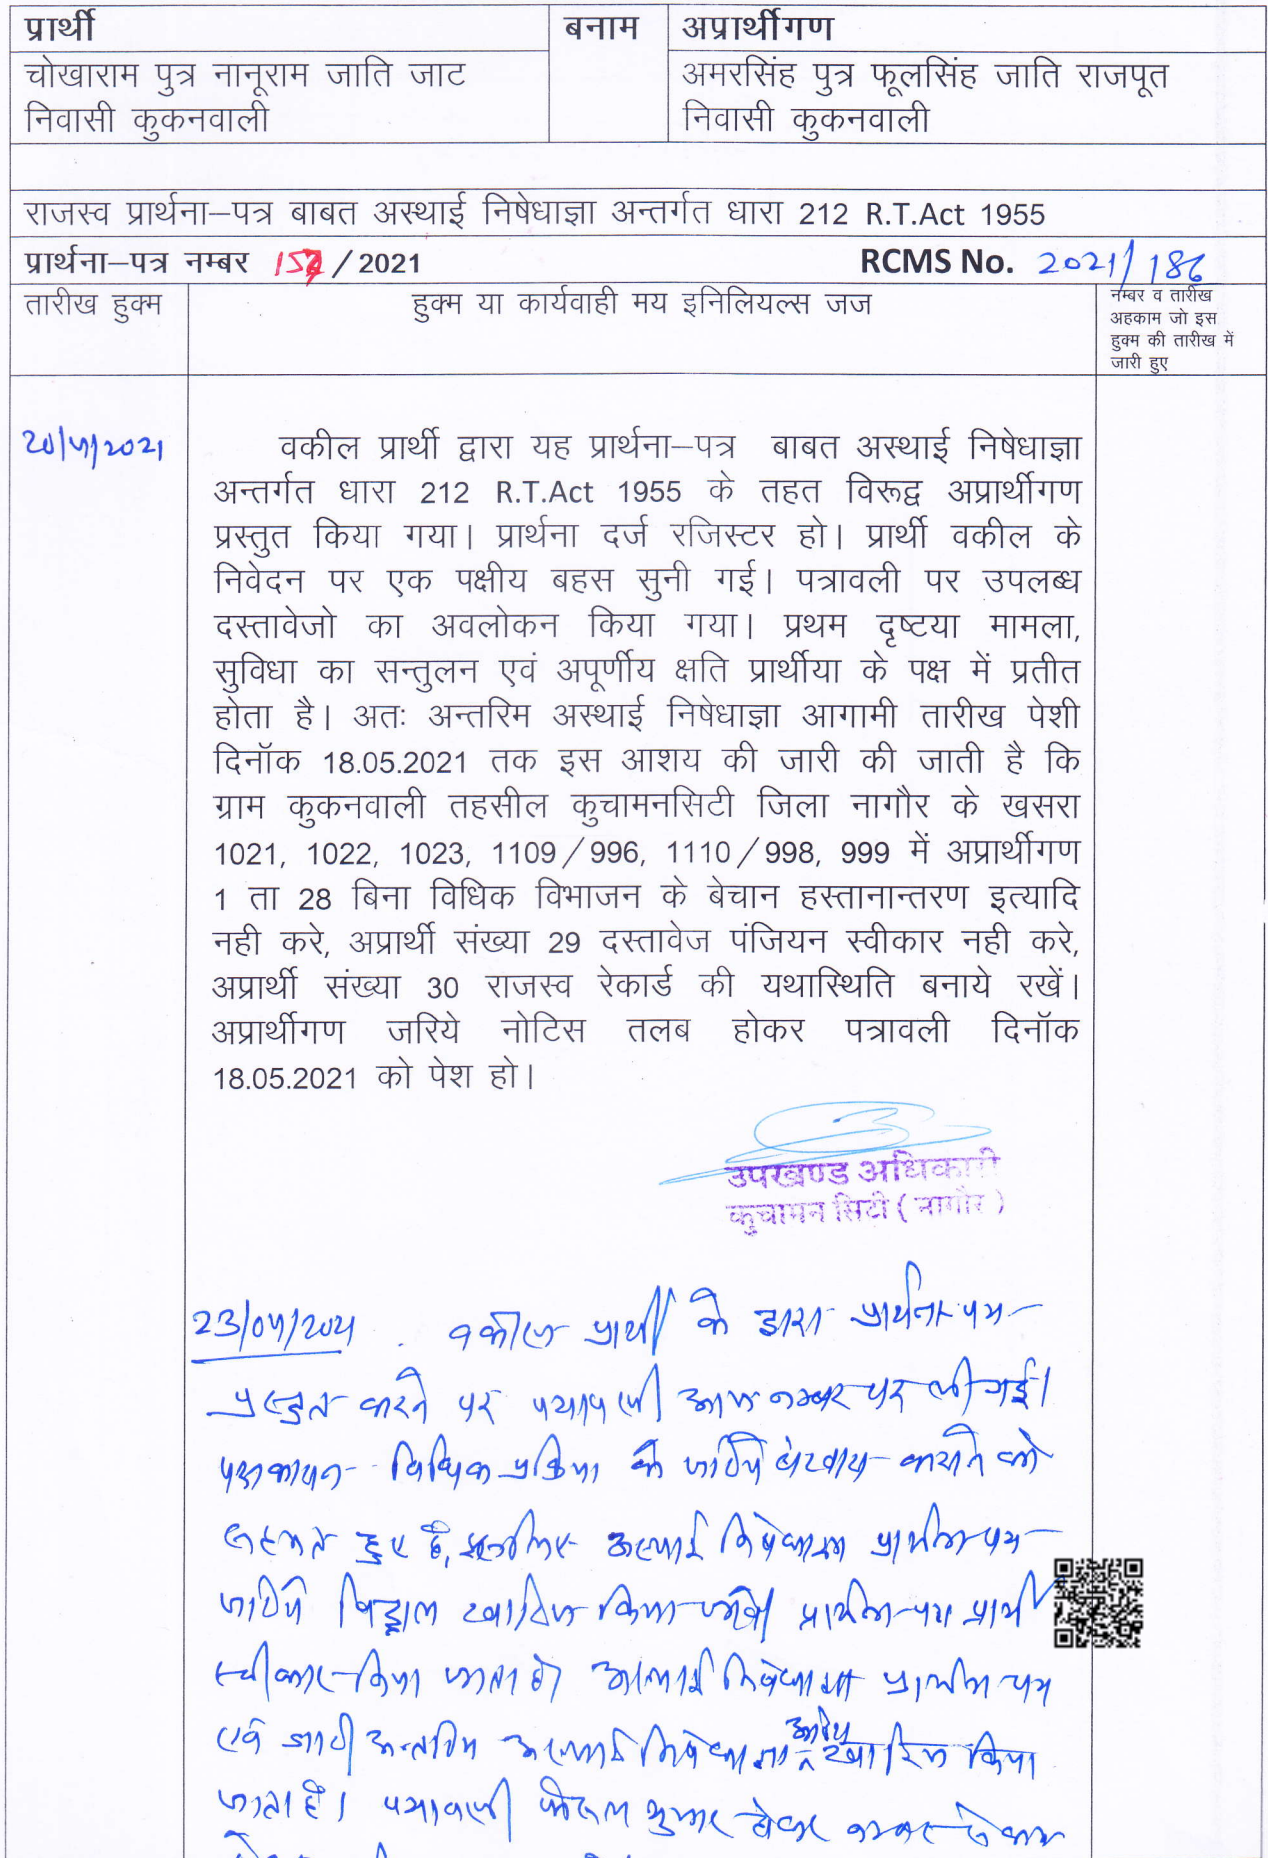 प्रार्थी बनाम अप्रार्थीगण
चोखाराम पुत्र नानूराम जाति जाट
निवासी कुकनवाली
अमरसिंह पुत्र फूलसिंह जाति राजपूत
निवासी कुकनवाली
राजस्व प्रार्थना–पत्र बाबत अस्थाई निषेधाज्ञा अन्तर्गत धारा 212 R.T.Act 1955
प्रार्थना–पत्र नम्बर / 2021 RCMS No. 2021/186
तारीख हुक्म
हुक्म या कार्यवाही मय इनिलियल्स जज
नम्बर व तारीख
अहकाम जो इस
हुक्म की तारीख में
जारी हुए
20/4/2021
वकील प्रार्थी द्वारा यह प्रार्थना–पत्र बाबत अस्थाई निषेधाज्ञा
अन्तर्गत धारा 212 R.T.Act 1955 के तहत विरूद्व अप्रार्थीगण
प्रस्तुत किया गया। प्रार्थना दर्ज रजिस्टर हो। प्रार्थी वकील के
निवेदन पर एक पक्षीय बहस सुनी गई। पत्रावली पर उपलब्ध
दस्तावेजो का अवलोकन किया गया। प्रथम दृष्टया मामला,
सुविधा का सन्तुलन एवं अपूर्णीय क्षति प्रार्थीया के पक्ष में प्रतीत
होता है। अतः अन्तरिम अस्थाई निषेधाज्ञा आगामी तारीख पेशी
दिनॉक 18.05.2021 तक इस आशय की जारी की जाती है कि
ग्राम कुकनवाली तहसील कुचामनसिटी जिला नागौर के खसरा
1021, 1022, 1023, 1109/996, 1110/998, 999 में अप्रार्थीगण
1 ता 28 बिना विधिक विभाजन के बेचान हस्तानान्तरण इत्यादि
नही करे, अप्रार्थी संख्या 29 दस्तावेज पंजियन स्वीकार नही करे,
अप्रार्थी संख्या 30 राजस्व रेकार्ड की यथास्थिति बनाये रखें।
अप्रार्थीगण जरिये नोटिस तलब होकर पत्रावली दिनॉक
18.05.2021 को पेश हो।
उपखण्ड अधिकारी
कुचामन सिटी ( नागौर )
23/04/2021 . वकील प्रार्थी के द्वारा प्रार्थना पत्र
प्रस्तुत करने पर पत्रावली आज नम्बर पर ली गई।
पक्षकारान विधिक प्रक्रिया के जरिये करने को
सहमत हुए है, इसलिए अस्थाई निषेधाज्ञा प्रार्थना पत्र
जरिये विड्राल खारिज किया जावे। प्रार्थना पत्र प्रार्थी
स्वीकार किया जाता है। अस्थाई निषेधाज्ञा प्रार्थना पत्र
एवं जारी अन्तरिम अस्थाई निषेधाज्ञा आदेश खारिज किया
जाता है। पत्रावली फैसल शुमार होकर नम्बर से कम